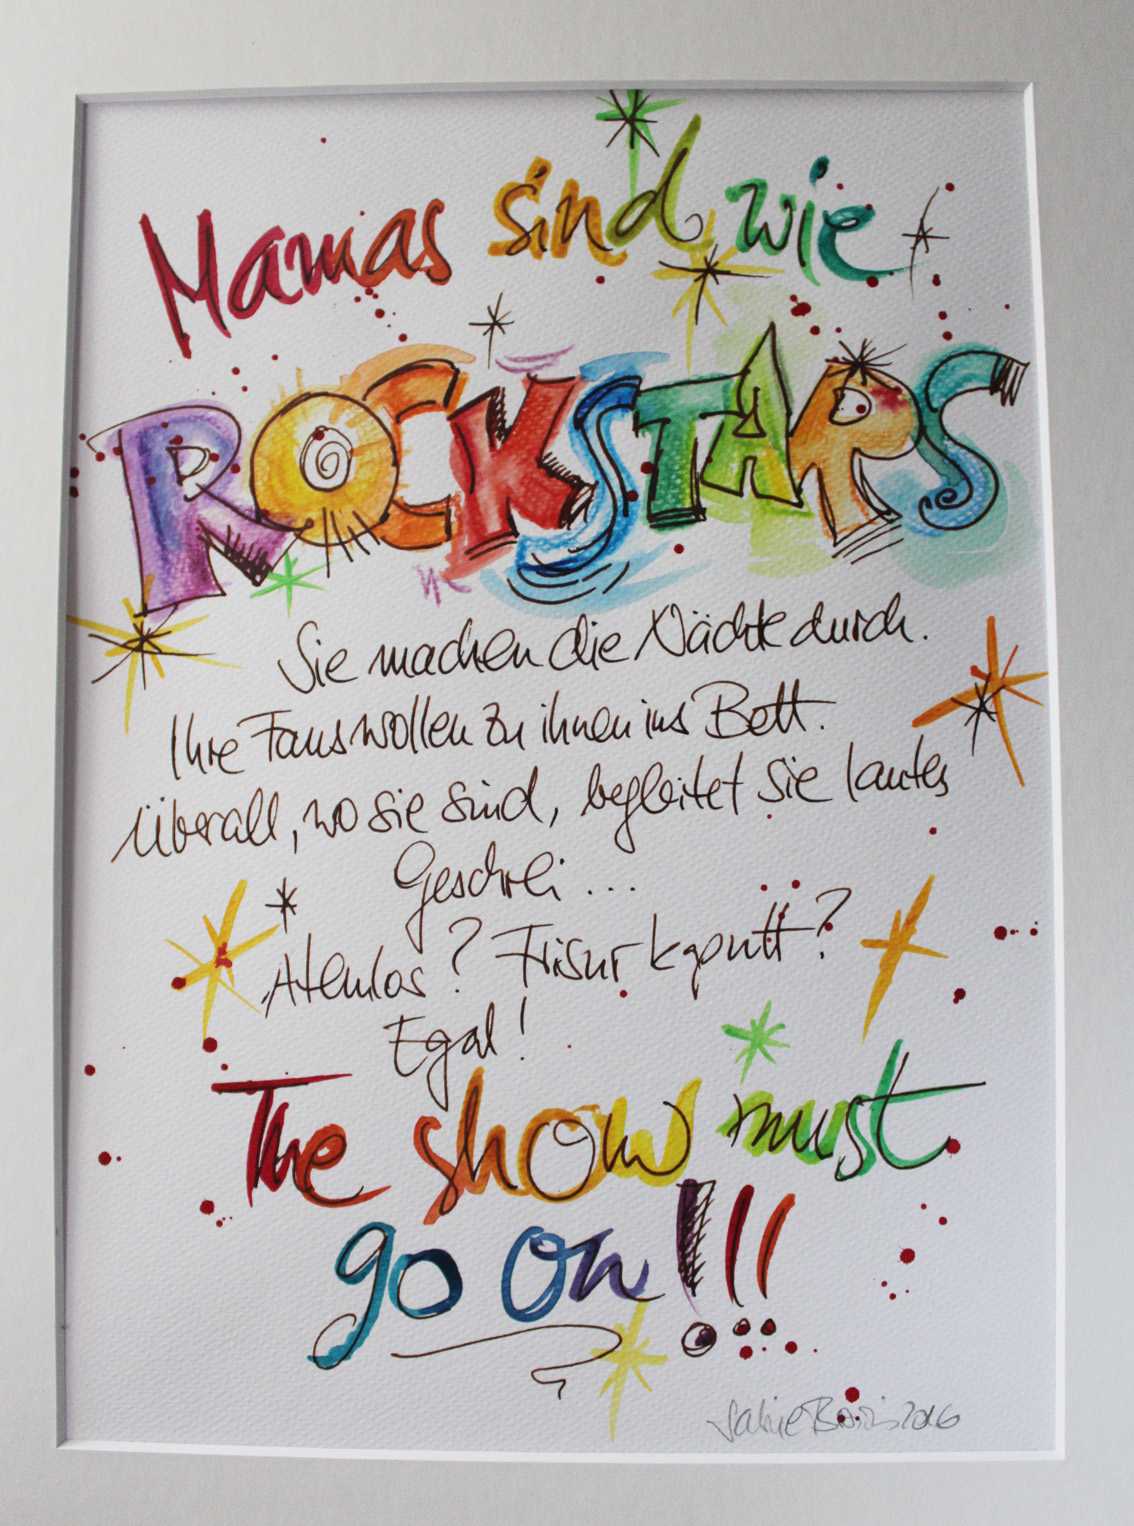 Mamas sind wie
ROCKSTARS
Sie machen die Nächte durch.
Ihre Fans wollen zu ihnen ins Bett.
Überall, wo sie sind, begleitet sie lautes
Geschrei...
Atemlos? Frisur kaputt?
Egal!
The show must
go on!!!
2016